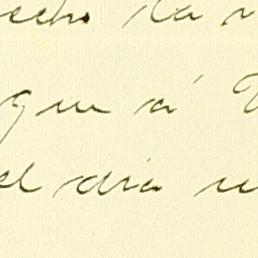 echo la
que á V
el dia